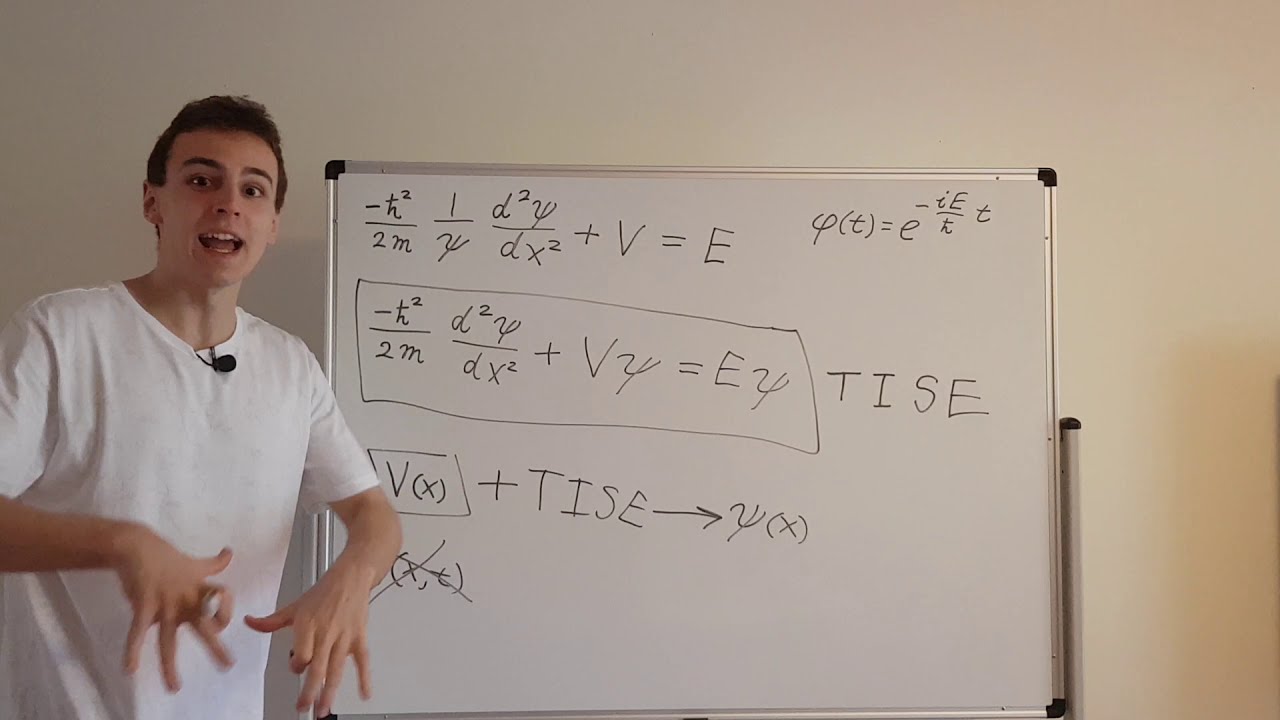 -ħ²/2m 1/ψ d²ψ/dx² + V = E
φ(t) = e^(-iE/ħ t)
-ħ²/2m d²ψ/dx² + Vψ = Eψ TISE
V(x) + TISE → ψ(x)
(x, t)